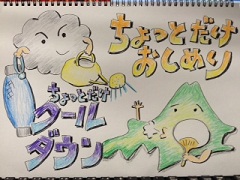 ちょっとだけ
おしめり
ちょっとだけ
クール
ダウン